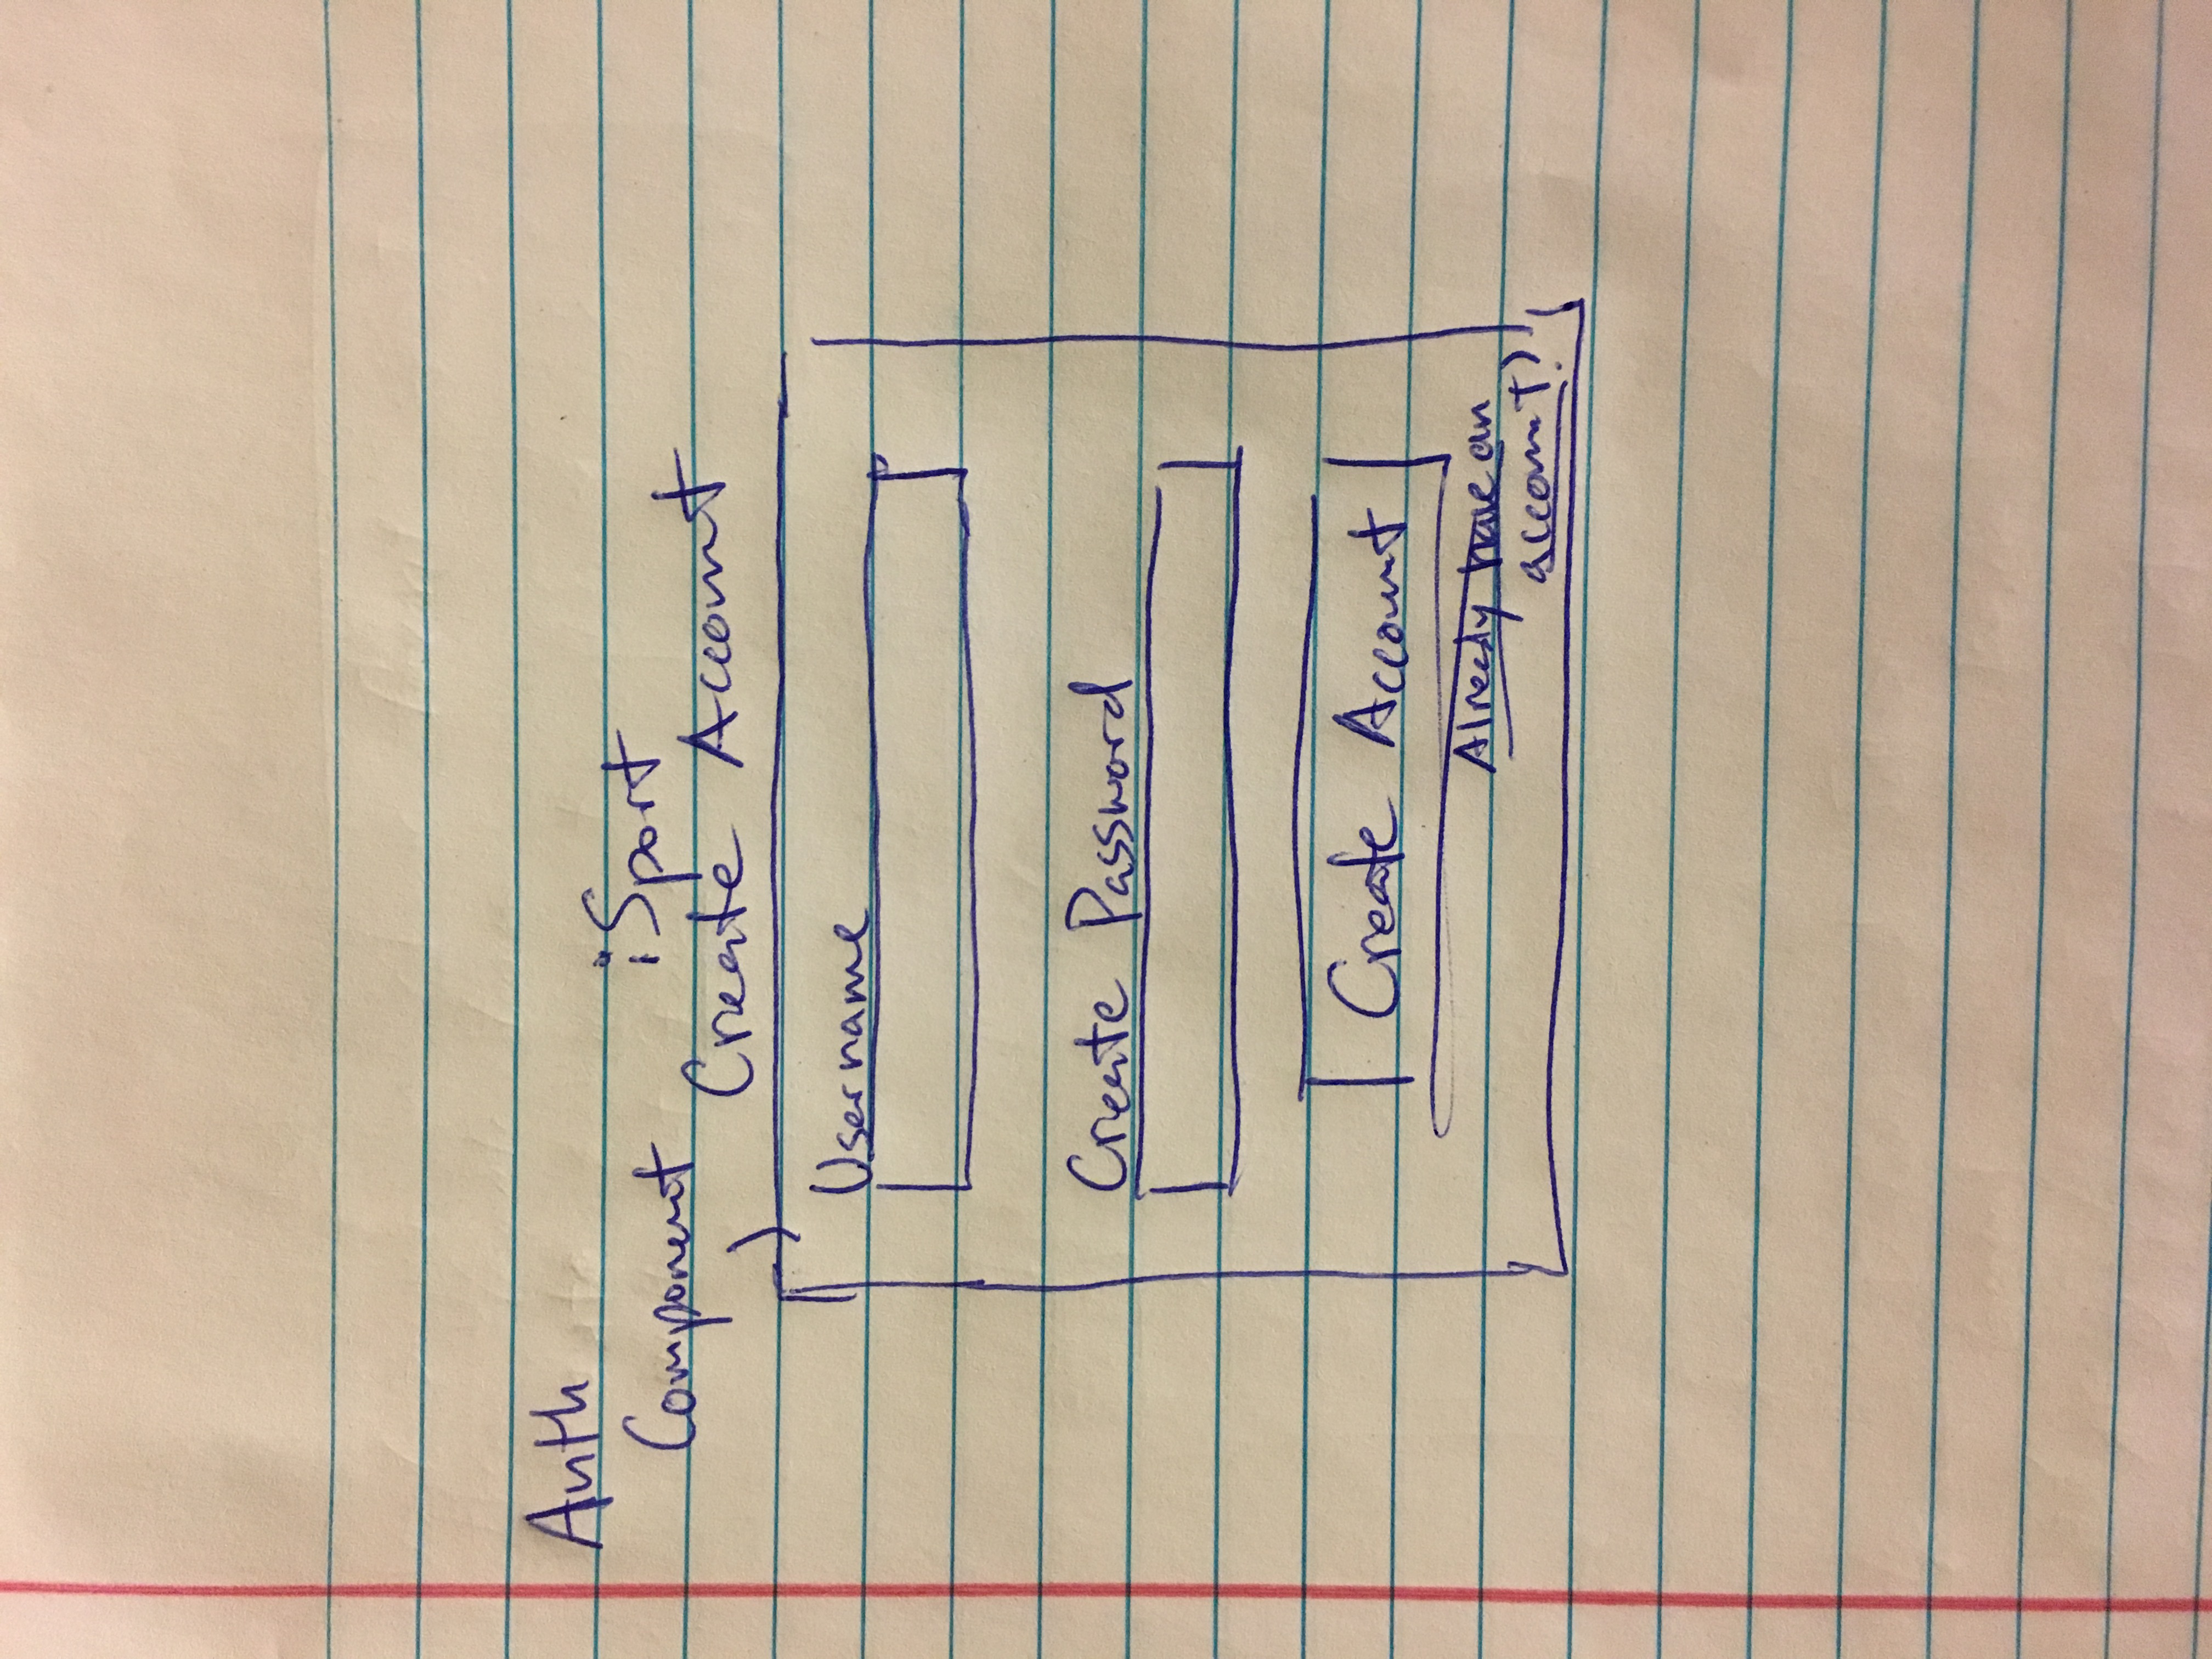 Auth
Component
iSport
Create Account
Username
Create Password
Create Account
Already have an
account?